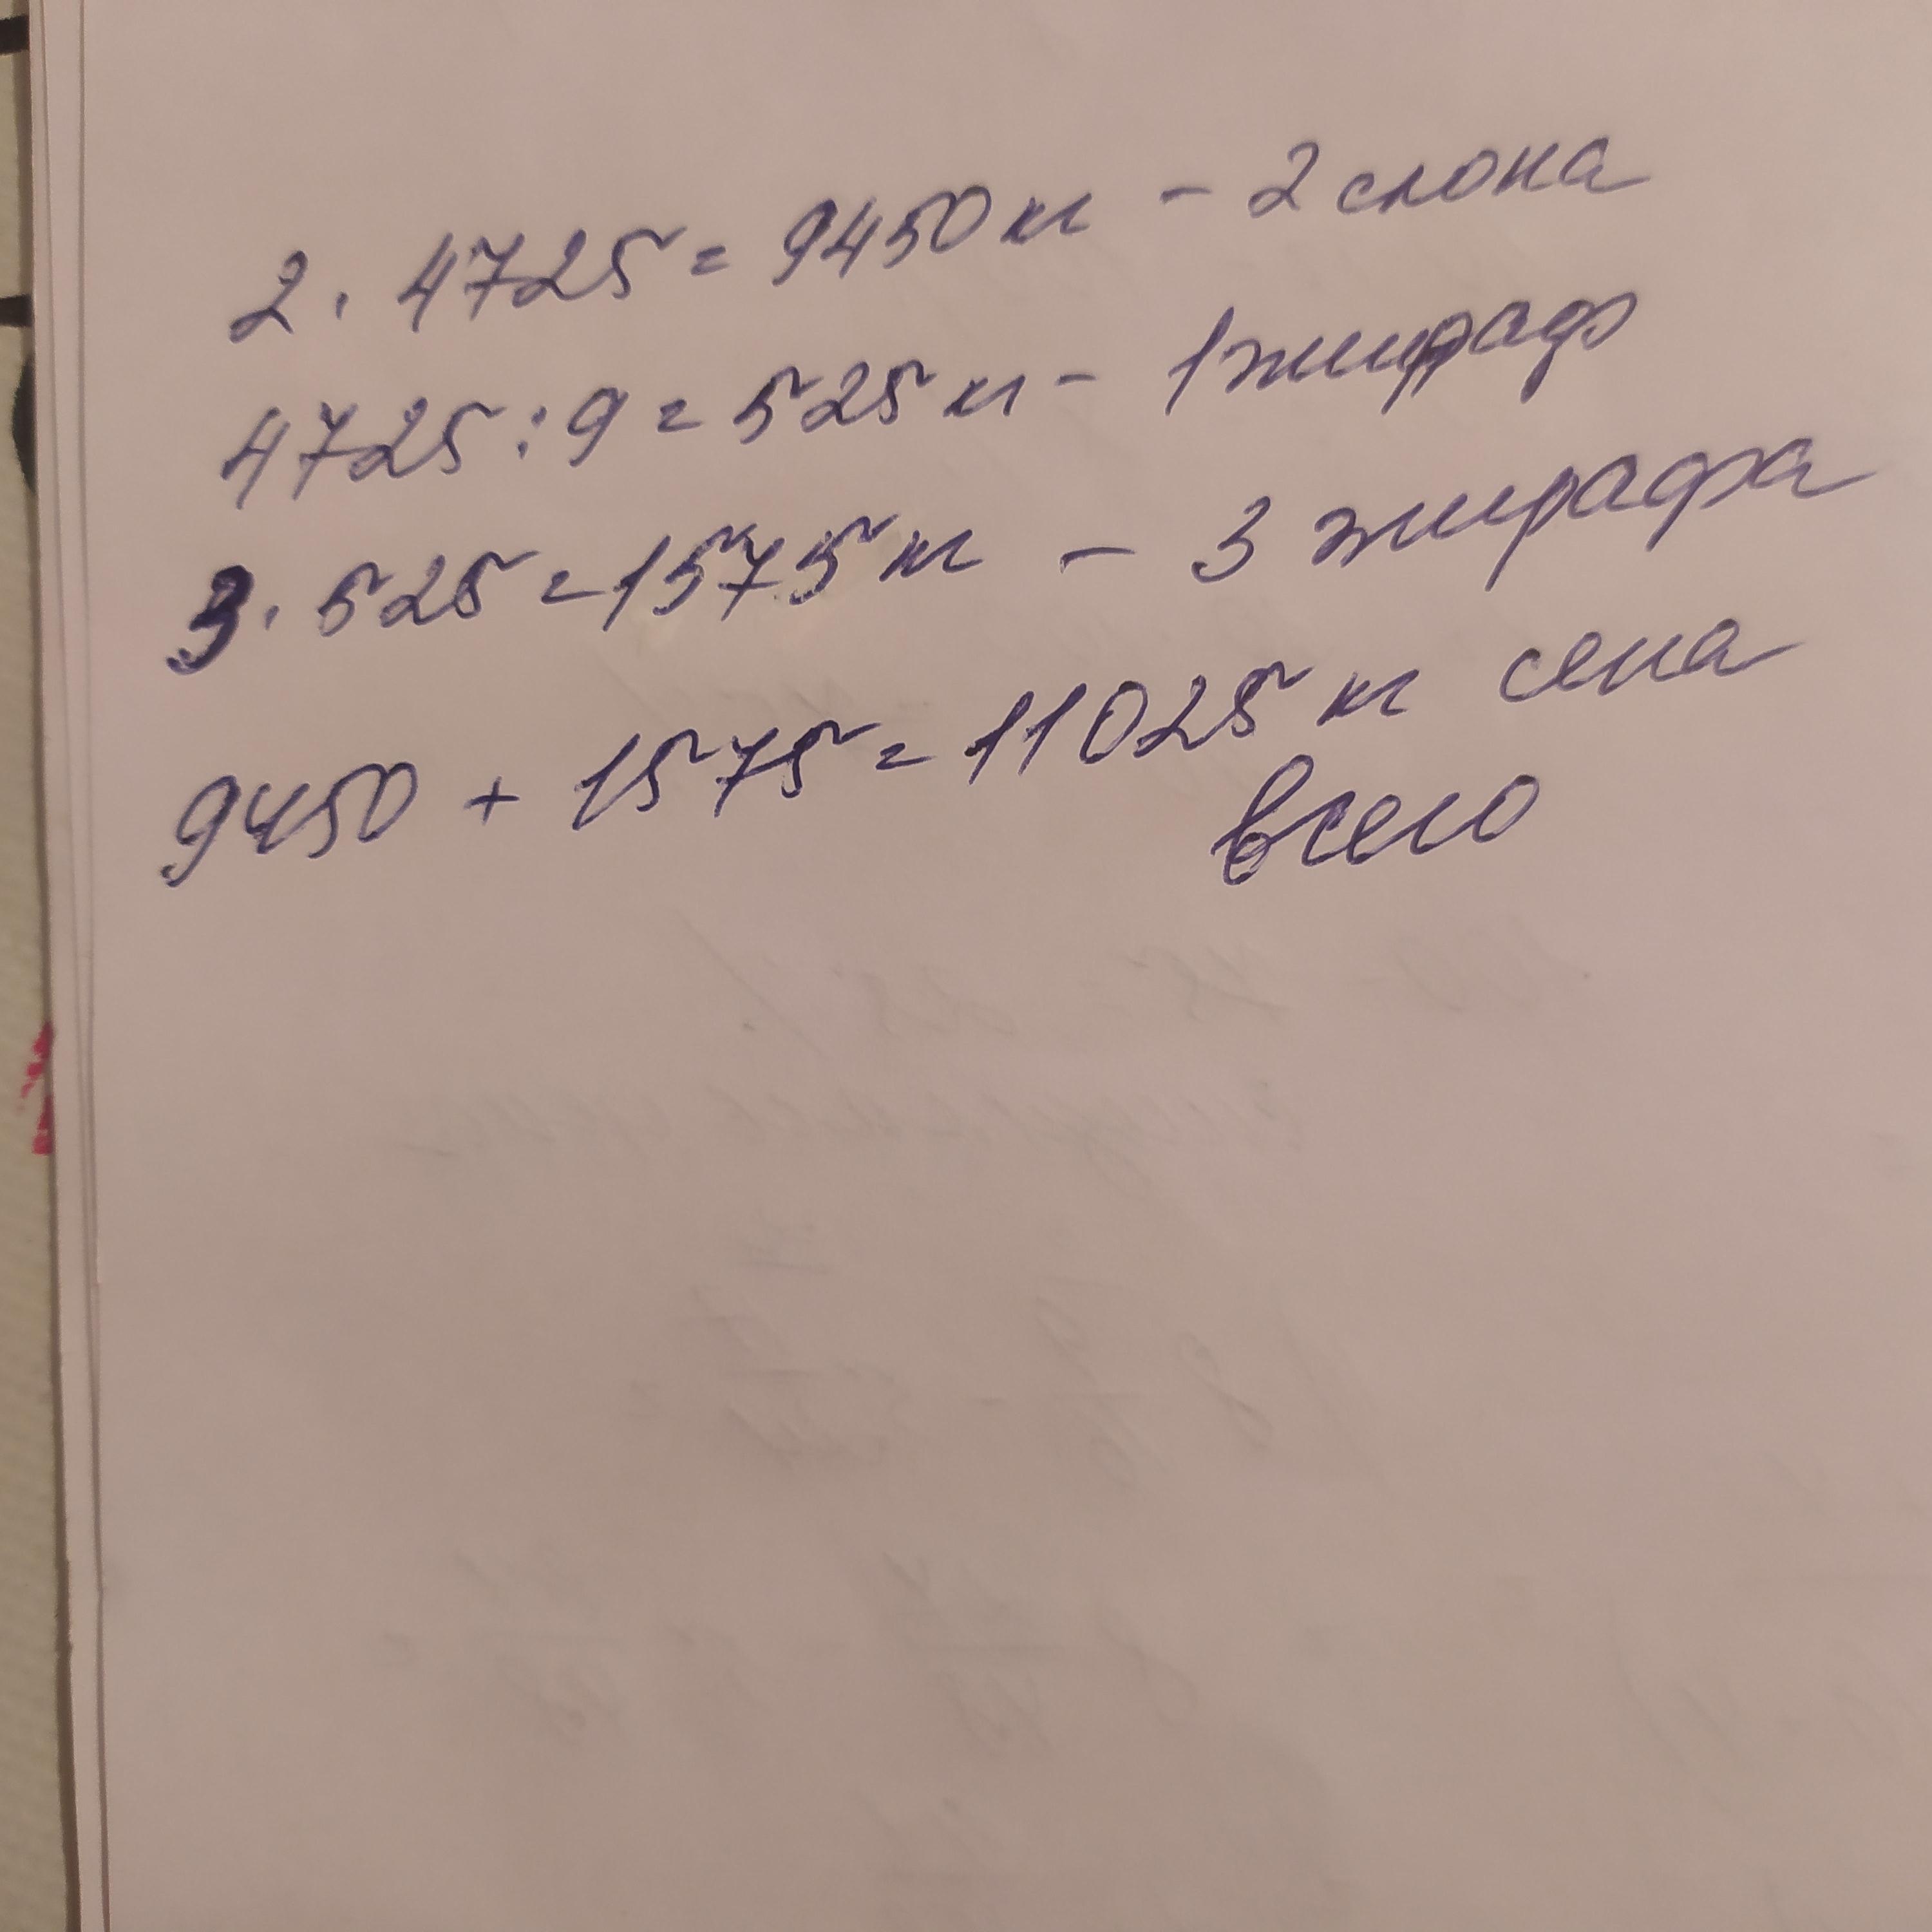 2 · 4725 = 9450 кг - 2 слона
4725 : 9 = 525 кг - 1 жираф
3 · 525 = 1575 кг - 3 жирафа
9450 + 1575 = 11025 кг сена
всего